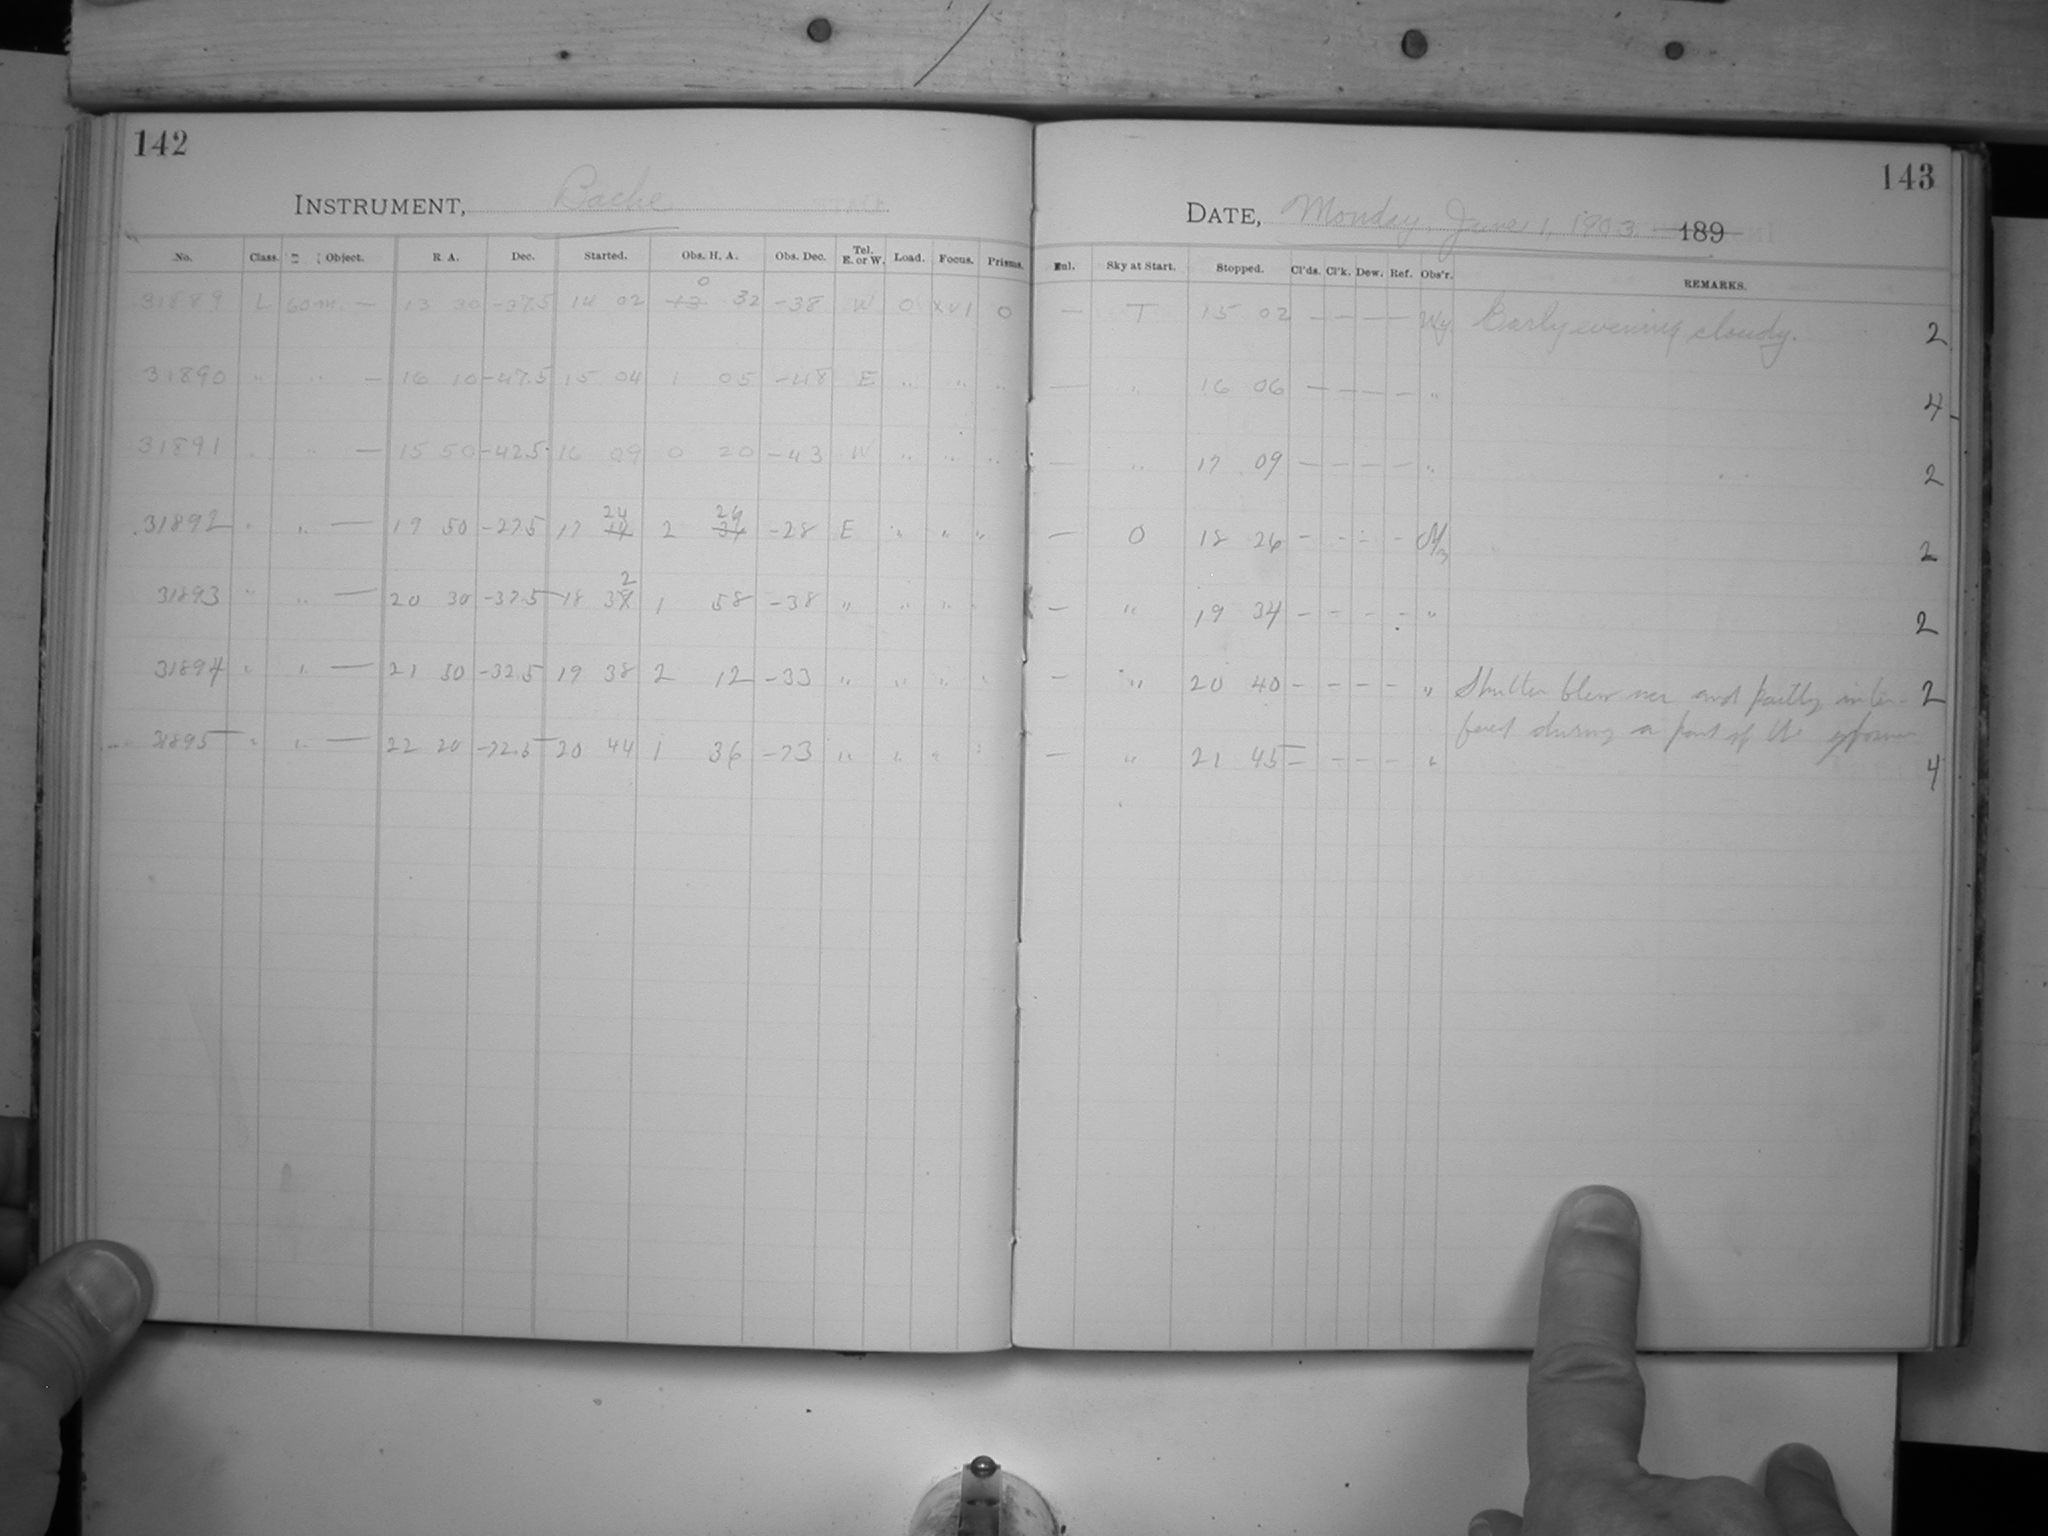 142
INSTRUMENT, Bache
No. Class. Object. R. A. Dec. Started. Obs. H. A. Obs. Dec. Tel. E. or W. Load. Focus. Prisms.
31889 L 60m. — 13 30 -37.5 14 02 13 0 32 -38 W 0 XVI 0
31890 " " — 16 10 -47.5 15 04 1 05 -48 E " " "
31891 " " — 15 50 -42.5 16 09 0 20 -43 W " " "
31892 " " — 19 50 -27.5 17 24 2 26 -28 E " " "
31893 " " — 20 30 -37.5 18 32 1 58 -38 " " " "
31894 " " — 21 50 -32.5 19 38 2 12 -33 " " " "
31895 " " — 22 20 -72.5 20 44 1 36 -73 " " " "
143
DATE, Monday, June 1, 1903. 189
Enl. Sky at Start. Stopped. Cl'ds. Cl'k. Dew. Ref. Obs'r. REMARKS.
— T 15 02 — — — — Wy Early evening cloudy. 2
— " 16 06 — — — — " 4
— " 17 09 — — — — " 2
— 0 18 26 - - - - 2
— " 19 34 - - - - " 2
- " 20 40 - - - - " Shutter blew over and partly inter- 2
fered during a part of the exposure
— " 21 45 - - - - " 4